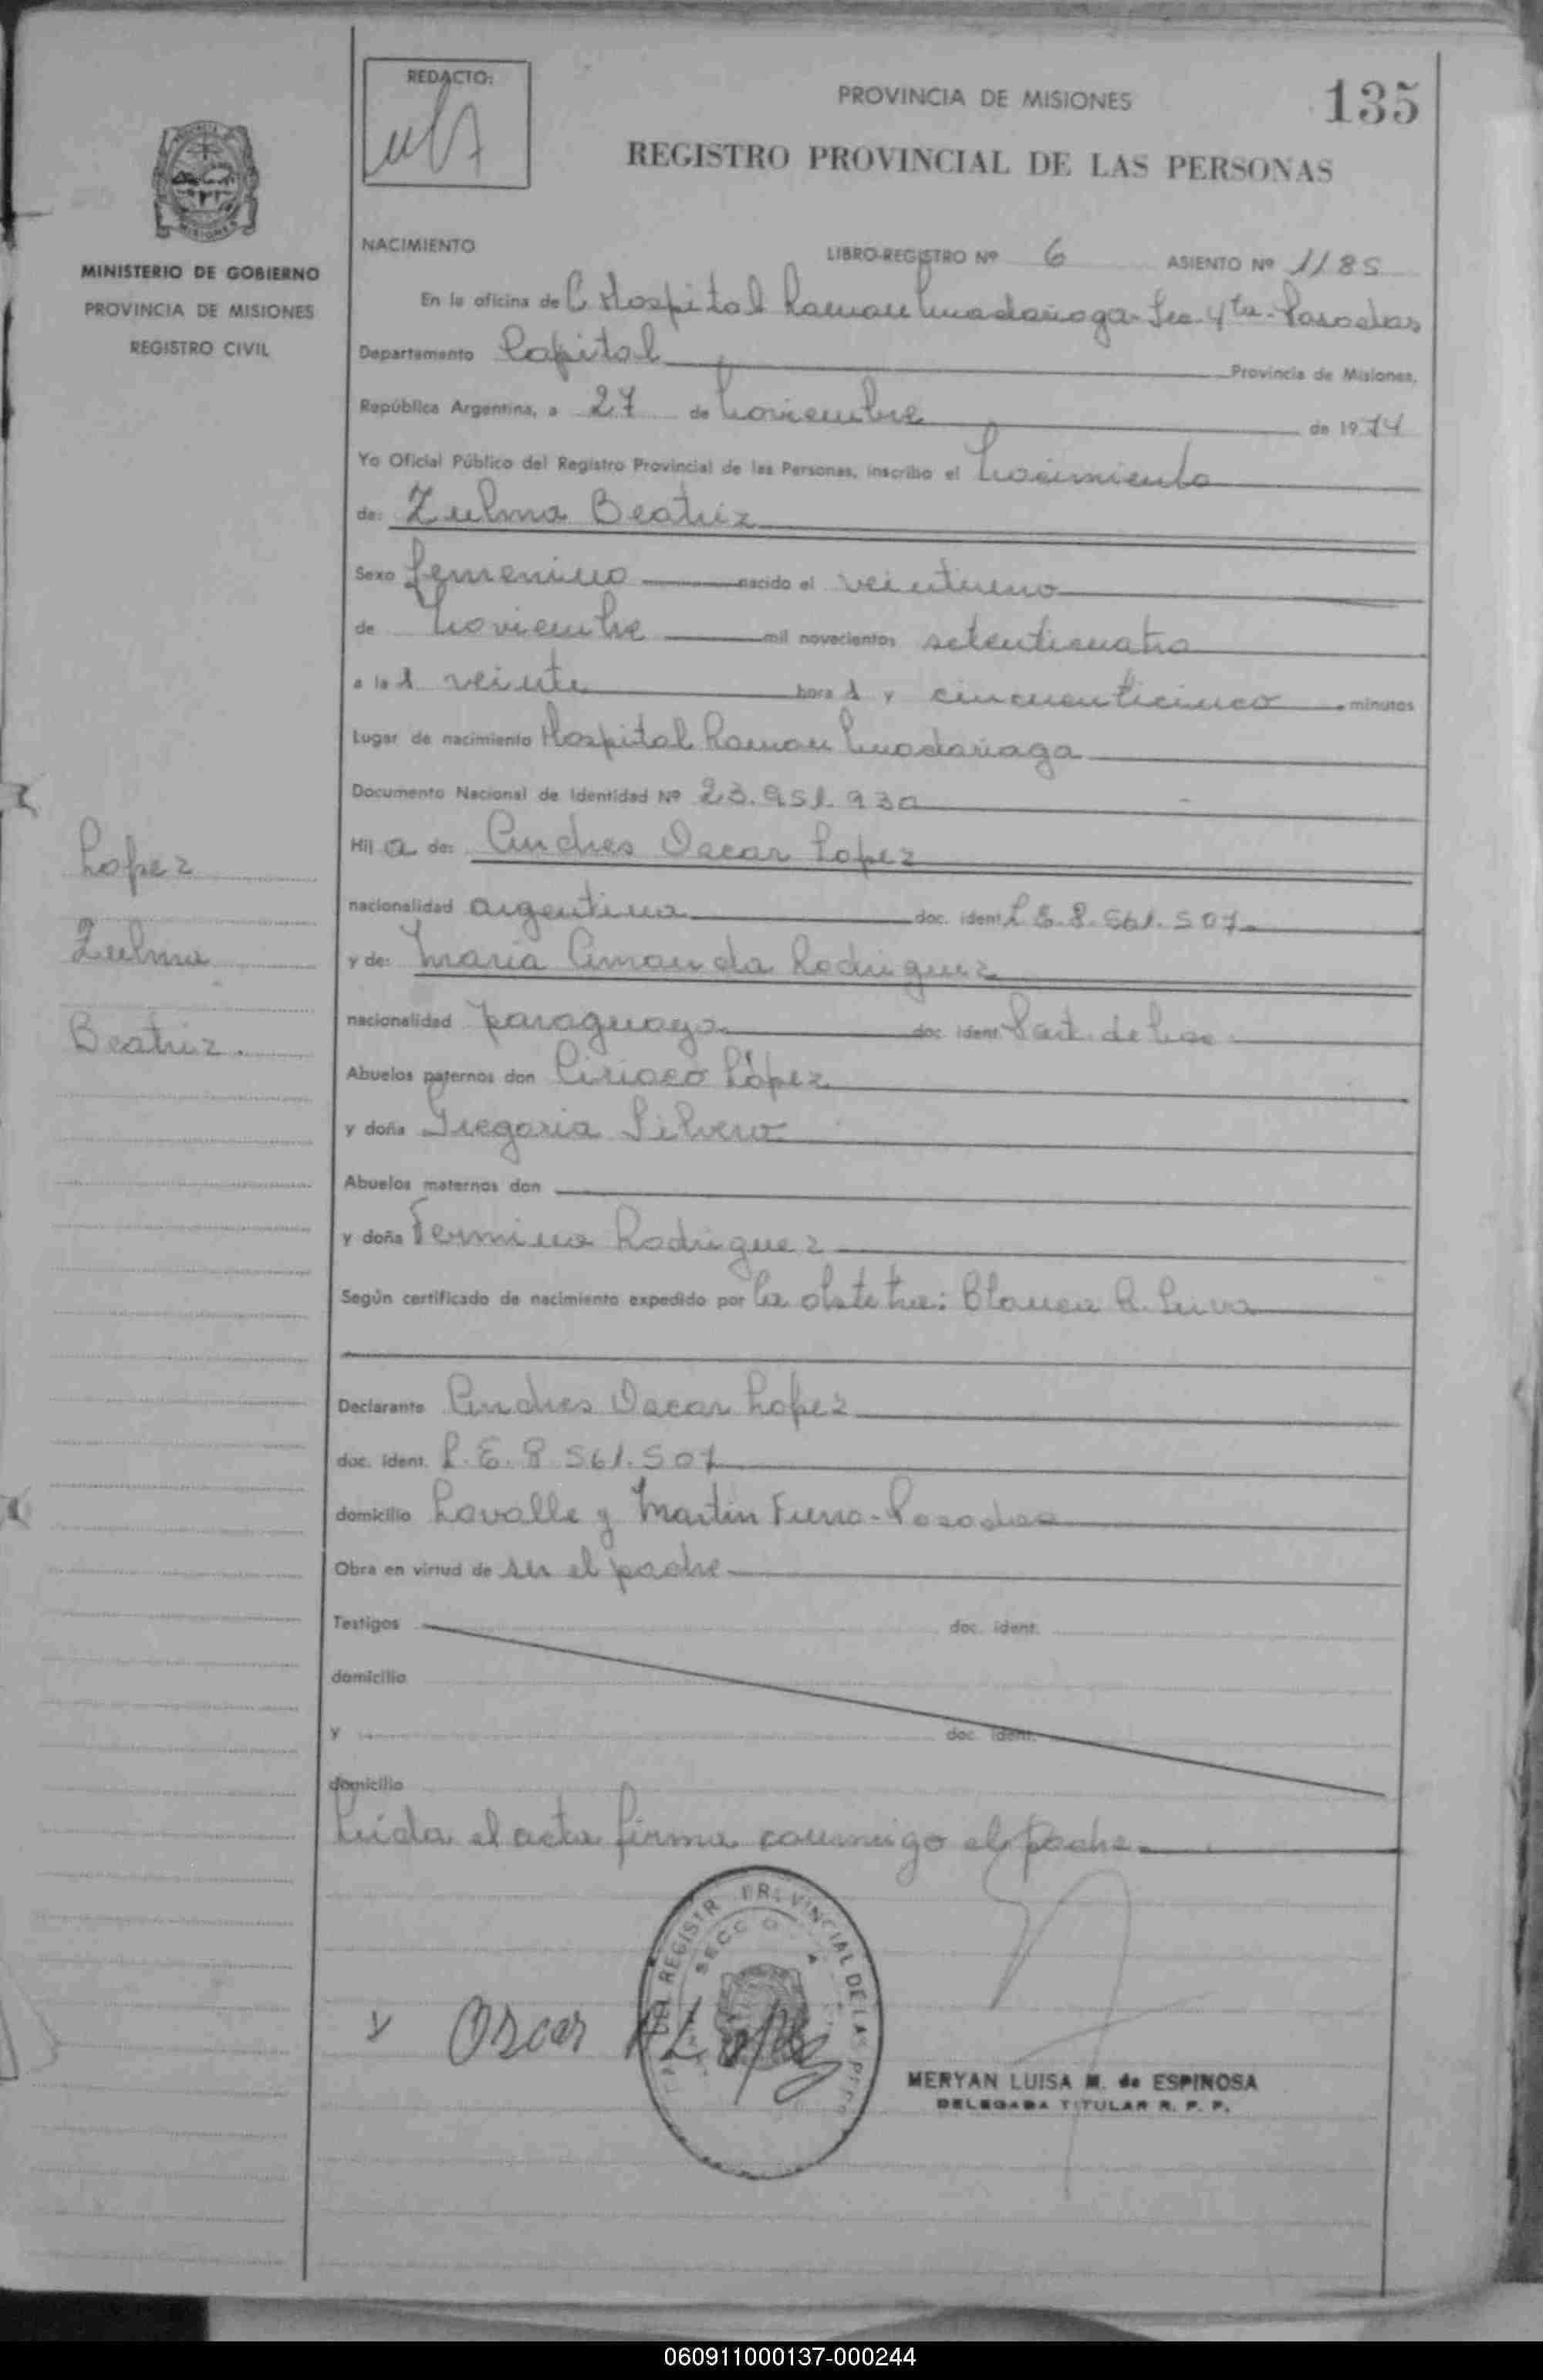 REDACTO:
PROVINCIA DE MISIONES
135
REGISTRO PROVINCIAL DE LAS PERSONAS
MINISTERIO DE GOBIERNO
PROVINCIA DE MISIONES
REGISTRO CIVIL
NACIMIENTO LIBRO-REGISTRO Nº 6 ASIENTO Nº 1185
En la oficina de Hospital Ramon Madariaga - Sec. 4ta - Posadas
Departamento Capital Provincia de Misiones,
República Argentina, a 27 de Noviembre de 1974
Yo Oficial Público del Registro Provincial de las Personas, inscribo el Nacimiento
de: Zulma Beatriz
Sexo femenino nacido el veintiuno
de Noviembre mil novecientos setenticuatro
a las veinte horas y cincuenticinco minutos
Lugar de nacimiento Hospital Ramon Madariaga
Documento Nacional de Identidad Nº 23.951.930
Hija de: Andres Oscar Lopez
nacionalidad argentina doc. ident. L.E. 8.561.507
y de: Maria Amanda Rodriguez
nacionalidad paraguaya doc. ident. Part. de Nac
Abuelos paternos don Ciriaco López
y doña Gregoria Silvero
Abuelos maternos don
y doña Fermina Rodriguez
Según certificado de nacimiento expedido por la obstetra: Blanca R.
Declarante Andres Oscar Lopez
doc. ident. L.E. 8.561.507
domicilio Lavalle y Martin Fierro - Posadas
Obra en virtud de ser el padre
Testigos doc. ident.
domicilio
y doc. ident.
domicilio
Leida el acta firma conmigo el padre
Lopez
Zulma
Beatriz
Oscar A Lopez
REGISTRO PROVINCIAL DE LAS
MERYAN LUISA M. de ESPINOSA
DELEGADA TITULAR R. P. P.
060911000137-000244